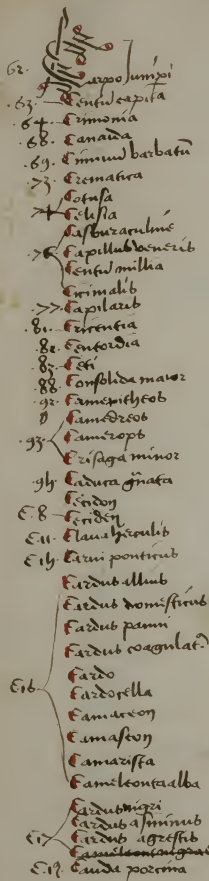 62. Carpo lumipi
.63. Centu capita
.64. Crimonia
.68. Canauda
.69. Ciminu barbatu
.73. Crematica
Cotusa
74 Celisia
Casburaculine
.76. Capillus veneris
Centu millia
Cicimalis
.77. Capilaris
.81. Cricentia
.82. Centordia
.83. Ceti
.88. Consolida maior
.92. Camepitheos
Camedreos
.93. Camerops
Crisaga minor
.94. Caduca gnata
Cecidon
C.8 Ceciden
C.11. Claua herculis
C.14. Carui ponticus
Cardus albus
Cardus domesticus
Cardus panni
Cardus coagulat
Cardo
C16 Cardocella
Camaceon
Camaseon
Camarista
Cameleonta alba
Cardus nigri
Cardus asininus
C17 Cardus agrestis
Cameleonta nigra
C.19. Cauda porcina